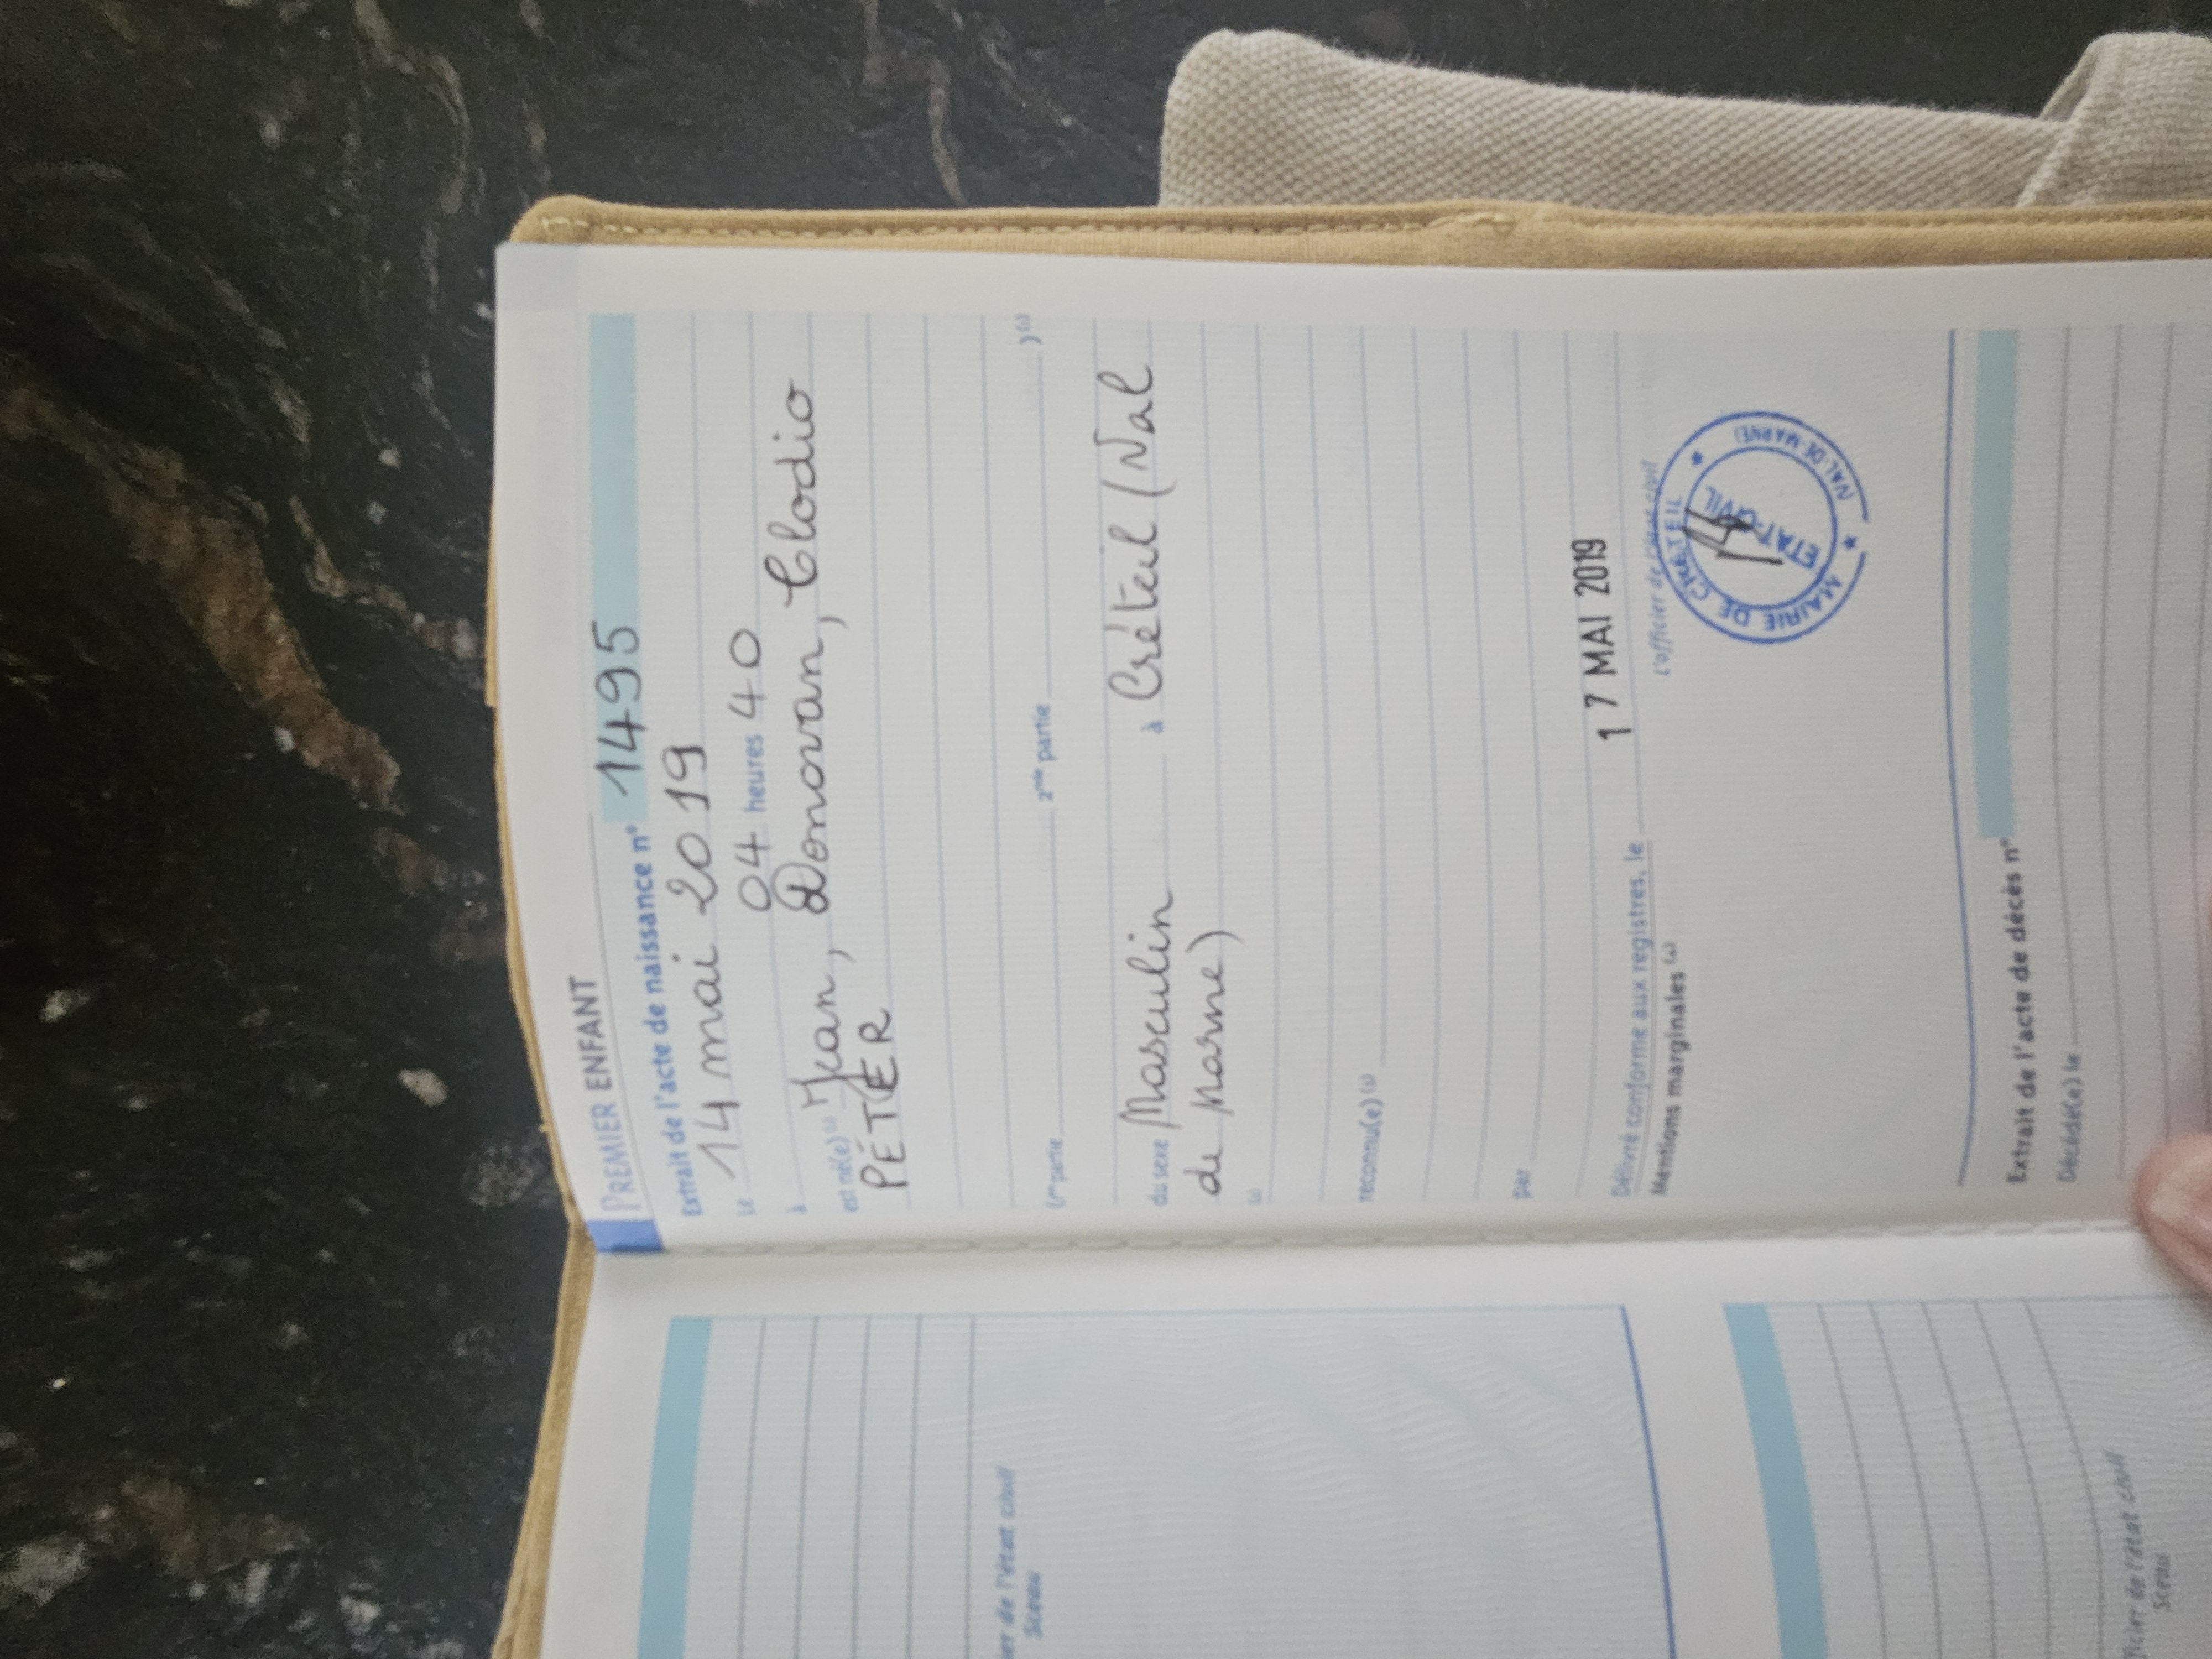 PREMIER ENFANT
Extrait de l'acte de naissance n° 1495
le 14 mai 2019
à 04 heures 40
est né(e) (1) Jean, Donovan, Clodio
PÉTER
(1re partie 2nde partie ) (1)
du sexe Masculin à Créteil (Val
de Marne)
reconnu(e) (1)
par
Délivré conforme aux registres, le 17 MAI 2019
Mentions marginales
L'officier de l'état civil
MAIRIE DE CRÉTEIL
(VAL-DE-MARNE)
ETAT-CIVIL
Extrait de l'acte de décès n°
Décédé(e) le
er de l'état civil
Sceau
fficier de l'état civil
Sceau